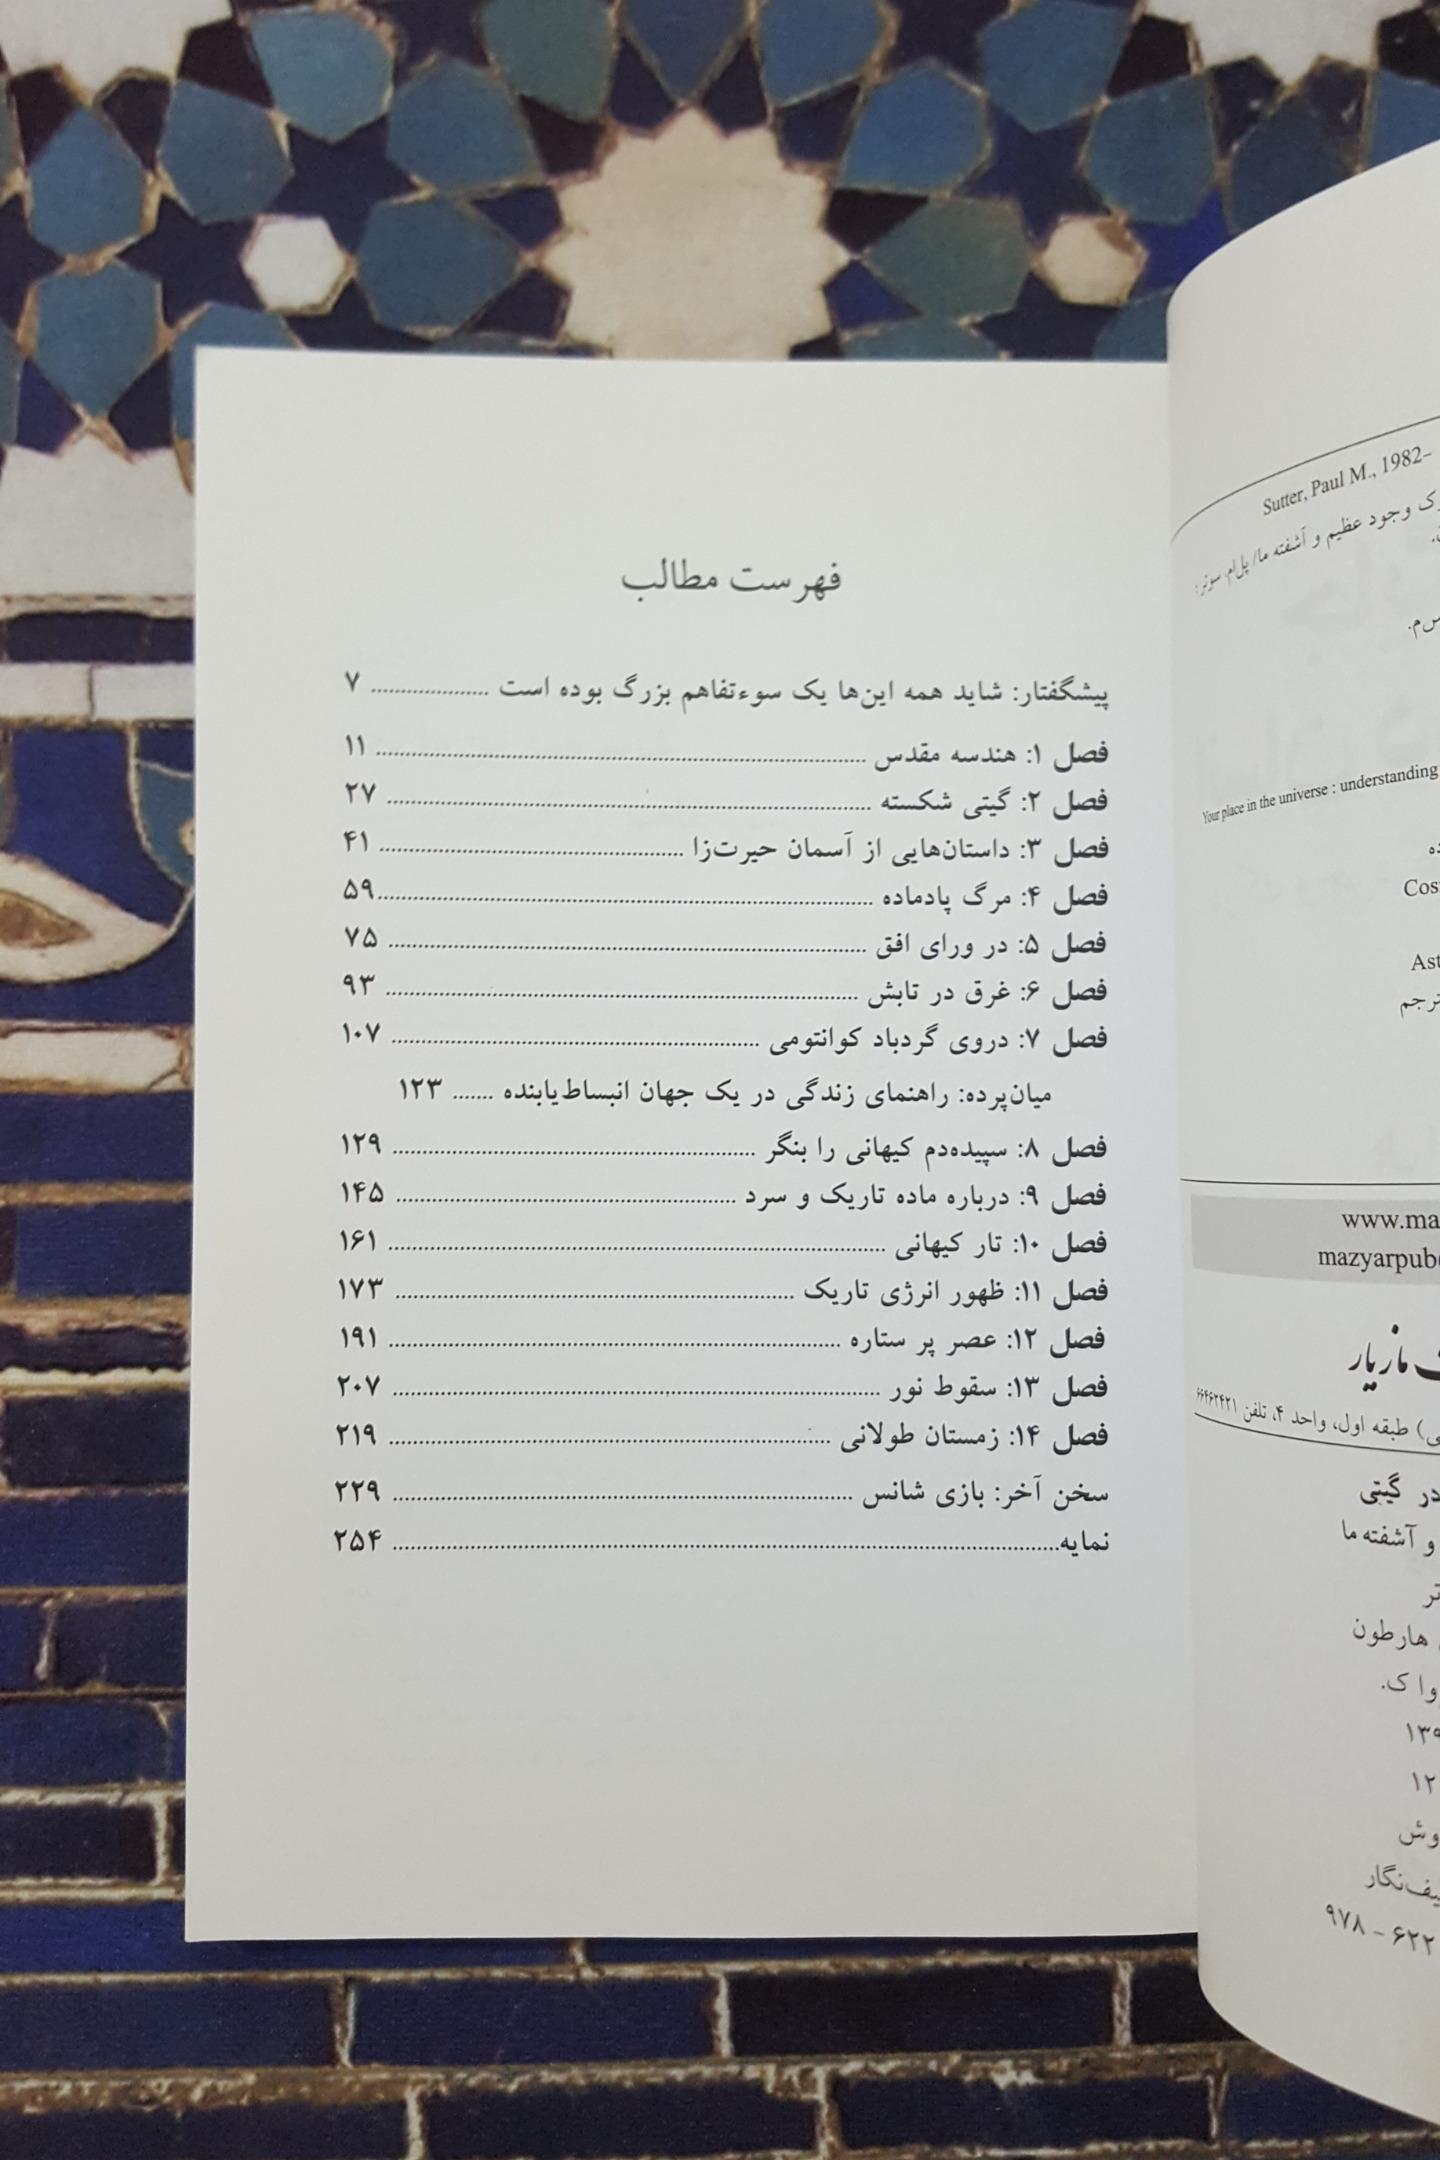 فهرست مطالب
پیشگفتار: شاید همه این‌ها یک سوءتفاهم بزرگ بوده است .................... ۷
فصل ۱: هندسه مقدس .................... ۱۱
فصل ۲: گیتی شکسته .................... ۲۷
فصل ۳: داستان‌هایی از آسمان حیرت‌زا .................... ۴۱
فصل ۴: مرگ پادماده .................... ۵۹
فصل ۵: در ورای افق .................... ۷۵
فصل ۶: غرق در تابش .................... ۹۳
فصل ۷: دروی گردباد کوانتومی .................... ۱۰۷
میان‌پرده: راهنمای زندگی در یک جهان انبساط‌یابنده ....... ۱۲۳
فصل ۸: سپیده‌دم کیهانی را بنگر .................... ۱۲۹
فصل ۹: درباره ماده تاریک و سرد .................... ۱۴۵
فصل ۱۰: تار کیهانی .................... ۱۶۱
فصل ۱۱: ظهور انرژی تاریک .................... ۱۷۳
فصل ۱۲: عصر پر ستاره .................... ۱۹۱
فصل ۱۳: سقوط نور .................... ۲۰۷
فصل ۱۴: زمستان طولانی .................... ۲۱۹
سخن آخر: بازی شانس .................... ۲۲۹
نمایه .................... ۲۵۴
Sutter, Paul M., 1982–
وجود عظیم و آشفته ما/ پل‌ام. سوتر؛
Your place in the universe : understanding
Cos
Ast
www.ma
mazyarpub
مازیار
طبقه اول، واحد ۴، تلفن ۶۶۴۶۲۴۲۱
در گیتی
و آشفته ما
هارطون
۹۷۸ – ۶۲۲